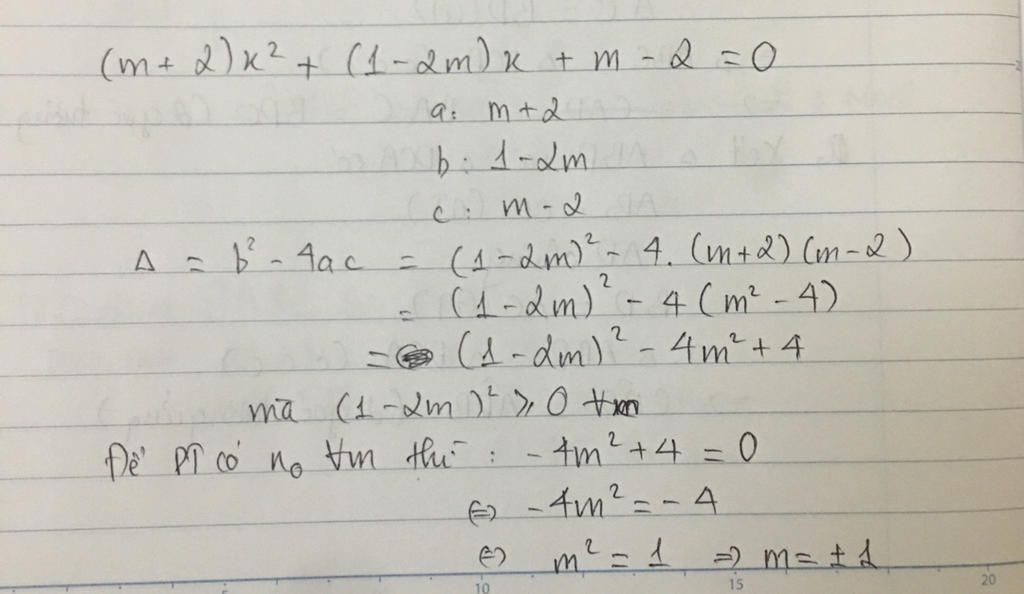 (m + 2)x² + (1 - 2m)x + m - 2 = 0
a: m + 2
b: 1 - 2m
c: m - 2
Δ = b² - 4ac = (1 - 2m)² - 4. (m+2)(m-2)
= (1 - 2m)² - 4(m² - 4)
= (1 - 2m)² - 4m² + 4
mà (1 - 2m)² ≥ 0 ∀m
Để PT có n₀ ∀m thì : -4m² + 4 = 0
⇔ -4m² = -4
⇔ m² = 1 ⇒ m = ± 1
5 10 15 20